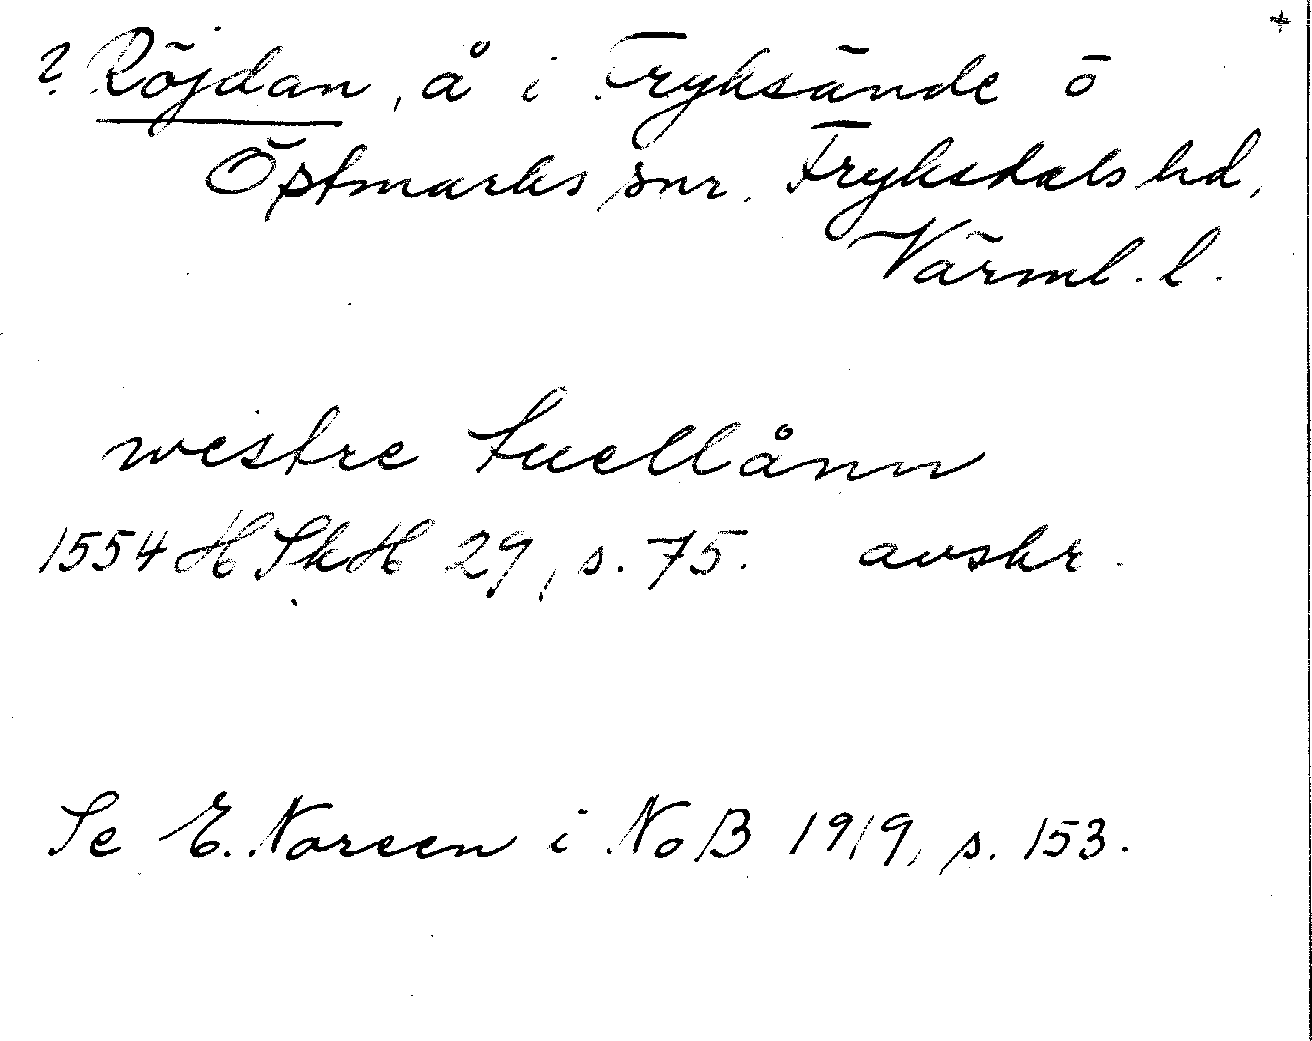 +
? Röjdan, å i Fryksände o
Östmarks snr. Fryksdals hd,
Värml. l.
westre tuellånn
1554 HSkH 29, s. 75. avskr.
Se E. Noreen i NoB 1919, s. 153.